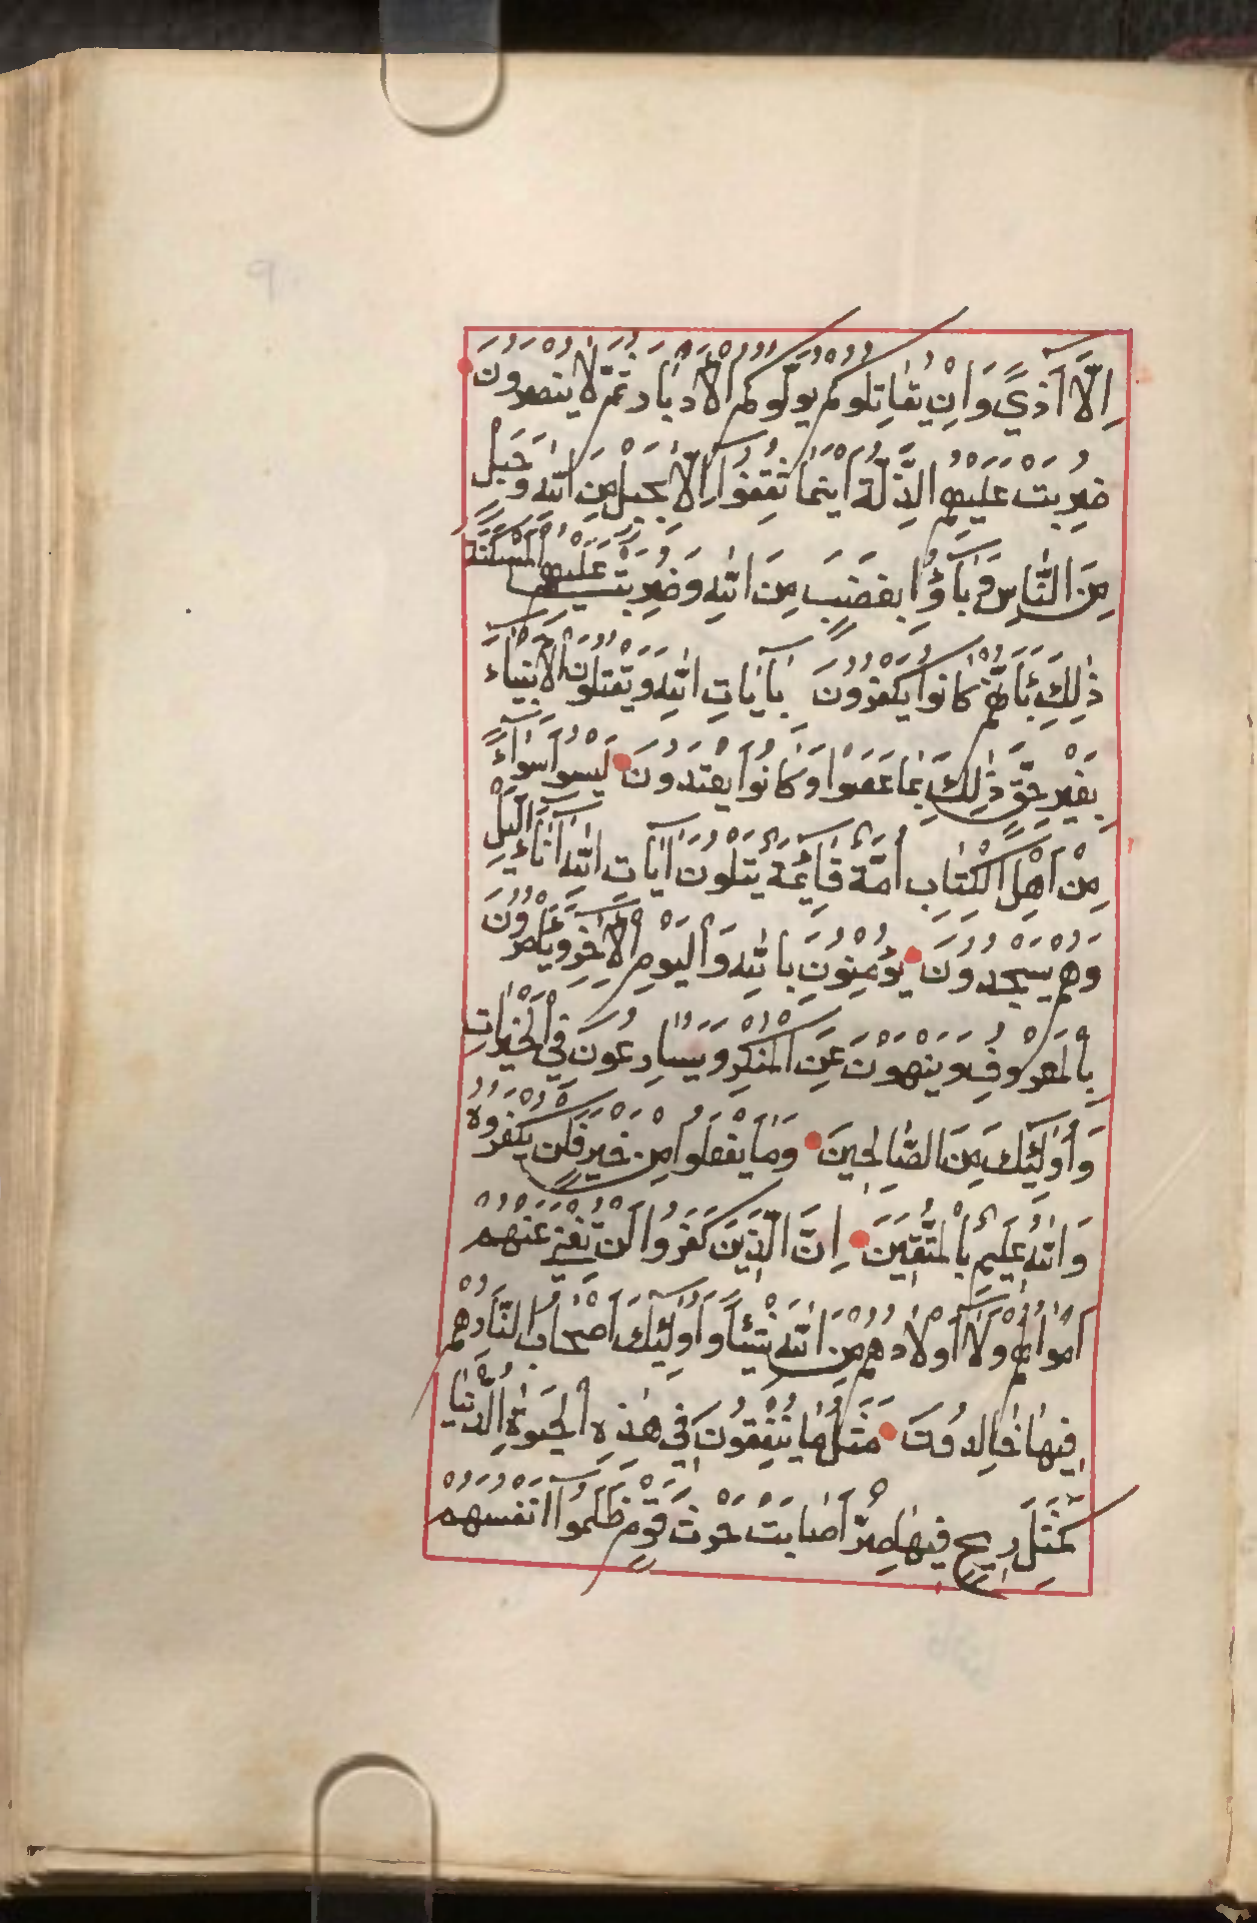 اِلَّا اَذًي وَاِنْ يُقَاتِلُوكُمْ يُوَلُّوكُمُ الْاَدْبَارَ ثُمَّ لَا يُنْصَرُونَ
ضُرِبَتْ عَلَيْهِمُ الذِّلَّةُ اَيْنَمَا ثُقِفُوا اِلَّا بِحَبْلٍ مِنَ اللّٰهِ وَحَبْلٍ
مِنَ النَّاسِ وَبَآؤُا بِغَضَبٍ مِنَ اللّٰهِ وَضُرِبَتْ عَلَيْهِمُ الْمَسْكَنَةُ
ذٰلِكَ بِاَنَّهُمْ كَانُوا يَكْفُرُونَ بِاٰيَاتِ اللّٰهِ وَيَقْتُلُونَ الْاَنْبِيَآءَ
بِغَيْرِ حَقٍّ ذٰلِكَ بِمَا عَصَوْا وَكَانُوا يَعْتَدُونَ لَيْسُوا سَوَآءً
مِنْ اَهْلِ الْكِتَابِ اُمَّةٌ قَآئِمَةٌ يَتْلُونَ اٰيَاتِ اللّٰهِ اٰنَآءَ الَّيْلِ
وَهُمْ يَسْجُدُونَ يُؤْمِنُونَ بِاللّٰهِ وَالْيَوْمِ الْاٰخِرِ وَيَاْمُرُونَ
بِالْمَعْرُوفِ وَيَنْهَوْنَ عَنِ الْمُنْكَرِ وَيُسَارِعُونَ فِي الْخَيْرَاتِ
وَاُولٰٓئِكَ مِنَ الصَّالِحِينَ وَمَا يَفْعَلُوا مِنْ خَيْرٍ فَلَنْ يُكْفَرُوهُ
وَاللّٰهُ عَلِيمٌ بِالْمُتَّقِينَ اِنَّ الَّذِينَ كَفَرُوا لَنْ تُغْنِيَ عَنْهُمْ
اَمْوَالُهُمْ وَلَآ اَوْلَادُهُمْ مِنَ اللّٰهِ شَيْئًا وَاُولٰٓئِكَ اَصْحَابُ النَّارِ هُمْ
فِيهَا خَالِدُونَ مَثَلُ مَا يُنْفِقُونَ فِي هٰذِهِ الْحَيٰوةِ الدُّنْيَا
كَمَثَلِ رِيحٍ فِيهَا صِرٌّ اَصَابَتْ حَرْثَ قَوْمٍ ظَلَمُوٓا اَنْفُسَهُمْ